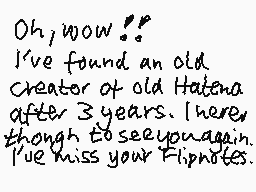 Oh, wow!!
I've found an old
creator of old Hatena
after 3 years. I never
though to see you again.
I've miss your Flipnotes.